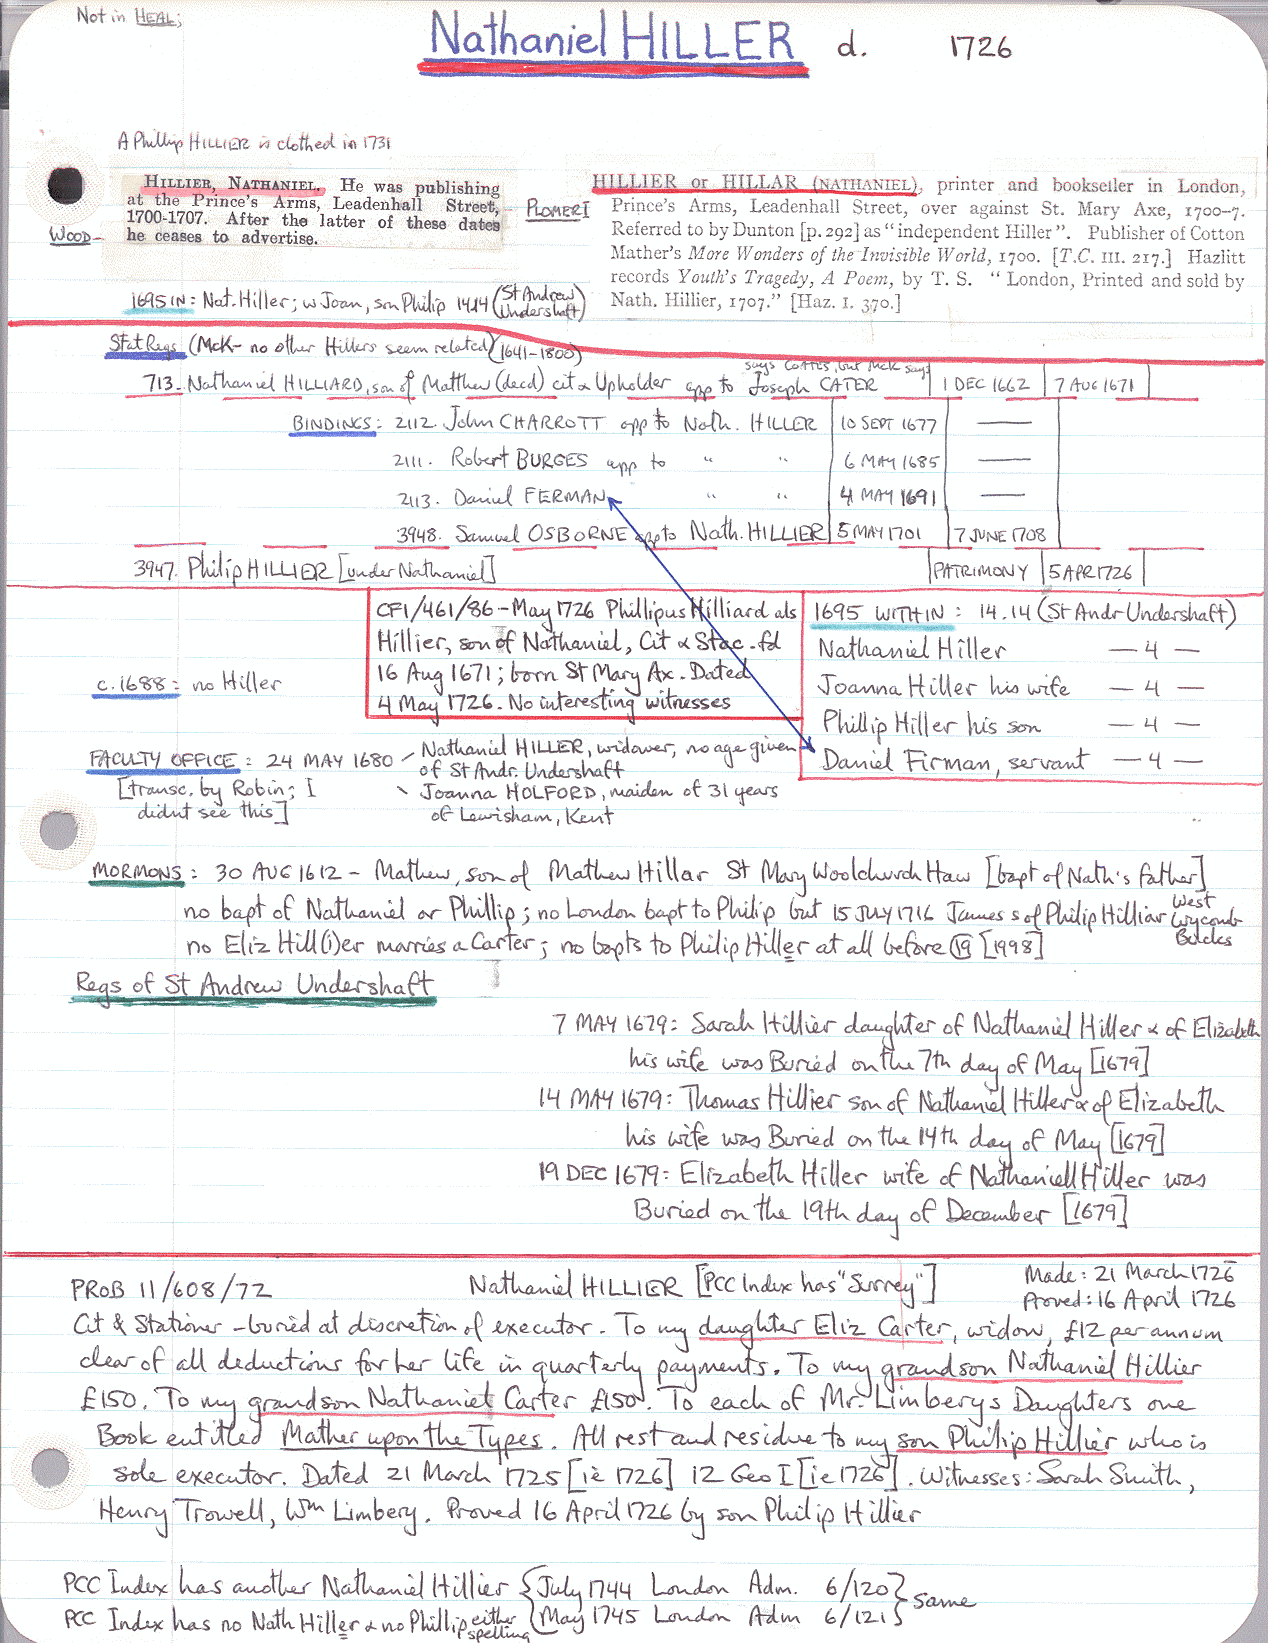 Not in HEAL;
Nathaniel HILLER d. 1726
A Phillip HILLIER is clothed in 1731
WOOD -
HILLIER, NATHANIEL. He was publishing
at the Prince's Arms, Leadenhall Street,
1700-1707. After the latter of these dates
he ceases to advertise.
PLOMER I
HILLIER or HILLAR (NATHANIEL), printer and bookseller in London,
Prince's Arms, Leadenhall Street, over against St. Mary Axe, 1700-7.
Referred to by Dunton [p. 292] as "independent Hiller". Publisher of Cotton
Mather's More Wonders of the Invisible World, 1700. [T.C. III. 217.] Hazlitt
records Youth's Tragedy, A Poem, by T. S. "London, Printed and sold by
Nath. Hillier, 1707." [Haz. I. 370.]
1695 IN: Nat. Hiller; w Joan, son Philip 14.14 (St Andrew Undershaft)
Stat Regs (McK - no other Hillers seem related) (1641-1800)
says COATES, but McK says
713. Nathaniel HILLIARD, son of Matthew (decd) cit & Upholder app to Joseph CATER 1 DEC 1662 7 AUG 1671
BINDINGS: 2112. John CHARROTT app to Nath. HILLER 10 SEPT 1677 —
2111. Robert BURGES app to " " 6 MAY 1685 —
2113. Daniel FERMAN " " 4 MAY 1691 —
3948. Samuel OSBORNE app to Nath. HILLIER 5 MAY 1701 7 JUNE 1708
3947. Philip HILLIER [under Nathaniel] PATRIMONY 5 APR 1726
c. 1688: no Hiller
CF1/461/86 - May 1726 Phillipus Hilliard als
Hillier, son of Nathaniel, Cit & Stac. fd
16 Aug 1671; born St Mary Ax. Dated
4 May 1726. No interesting witnesses
1695 WITHIN: 14.14 (St Andr Undershaft)
Nathaniel Hiller — 4 —
Joanna Hiller his wife — 4 —
Phillip Hiller his son — 4 —
Daniel Firman, servant — 4 —
FACULTY OFFICE: 24 MAY 1680 - Nathaniel HILLER, widower, no age given
of St Andr. Undershaft
[transc. by Robin; I
didnt see this]
Joanna HOLFORD, maiden of 31 years
of Lewisham, Kent
MORMONS: 30 AUG 1612 - Mathew, son of Mathew Hillar St Mary Woolchurch Haw [bapt of Nath's father]
no bapt of Nathaniel or Phillip; no London bapt to Philip but 15 JULY 1716 James s of Philip Hilliar West Wycomb Bucks
no Eliz Hill(i)er marries a Carter; no bapts to Philip Hiller at all before 19 [1998]
Regs of St Andrew Undershaft
7 MAY 1679: Sarah Hillier daughter of Nathaniel Hiller & of Elizabeth
his wife was Buried on the 7th day of May [1679]
14 MAY 1679: Thomas Hillier son of Nathaniel Hiller & of Elizabeth
his wife was Buried on the 14th day of May [1679]
19 DEC 1679: Elizabeth Hiller wife of Nathaniell Hiller was
Buried on the 19th day of December [1679]
PROB 11/608/72 Nathaniel HILLIER [PCC Index has "Surrey"] Made: 21 March 1726
Proved: 16 April 1726
Cit & Stationer - buried at discretion of executor. To my daughter Eliz Carter, widow, £12 per annum
clear of all deductions for her life in quarterly payments. To my grandson Nathaniel Hillier
£150. To my grandson Nathaniel Carter £150. To each of Mr. Limberys Daughters one
Book entitled Mather upon the Types. All rest and residue to my son Philip Hillier who is
sole executor. Dated 21 March 1725 [ie 1726] 12 Geo I [ie 1726]. Witnesses: Sarah Smith,
Henry Trowell, Wm Limbery. Proved 16 April 1726 by son Philip Hillier
PCC Index has another Nathaniel Hillier { July 1744 London Adm. 6/120 } same
PCC Index has no Nath Hiller & no Phillip either spelling { May 1745 London Adm 6/121 }